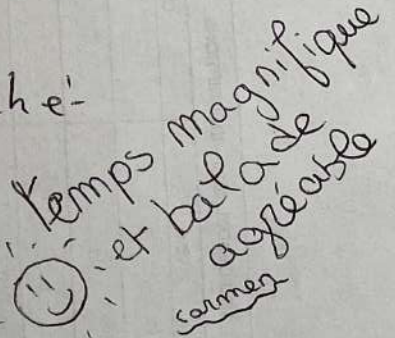 hé-
Temps magnifique
et balade
agréable
Carmen